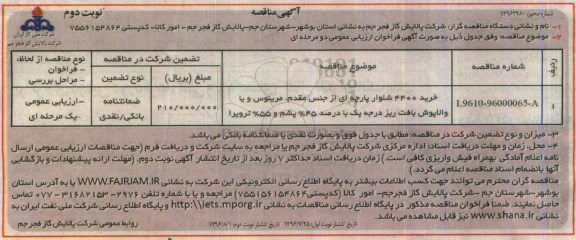 آگهی مناقصه
نوبت دوم
شرکت ملی گاز ایران
شرکت پالایش گاز فجر جم
۱- نام و نشانی دستگاه مناقصه گزار: شرکت پالایش گاز فجر جم به نشانی استان بوشهر-شهرستان جم-پالایش گاز فجر جم - امور کالا- کدپستی ۷۵۵۶۱۵۴۸۶۴
۲- موضوع مناقصه: وفق جدول ذیل به صورت آگهی فراخوان ارزیابی عمومی دو مرحله ای
ردیف
شماره مناقصه
موضوع مناقصه
تضمین شرکت در مناقصه
مبلغ (ریال)
نوع تضمین
نوع مناقصه از لحاظ:
- فراخوان
- مراحل بررسی
۱
L9610-96000065-A
خرید ۴۴۰۰ شلوار پارچه ای از جنس مقدم، مرینوس و یا
والاپوش بافت ریز درجه یک با درصد ۴۵% پشم و ۵۵% ترویرا
۲۱۰/۰۰۰/۰۰۰
ضمانتنامه
بانکی/نقدی
-ارزیابی عمومی
-یک مرحله ای
۳- میزان و نوع تضمین شرکت در مناقصه: مطابق با جدول فوق و بصورت نقدی یا ضمانتنامه بانکی می باشد.
۴- محل، زمان و مهلت دریافت اسناد: اداره مرکزی شرکت پالایش گاز فجر جم یا مراجعه به سایت شرکت و دریافت فرم (جهت مناقصات ارزیابی عمومی ارسال
نامه اعلام آمادگی بهمراه فیش واریزی کافی است.) زمان دریافت اسناد حداکثر ۷ روز بعد از تاریخ انتشار آگهی نوبت دوم. (مهلت ارائه پیشنهادات و بازگشایی
آنها بانضمام اسناد مناقصه اعلام می گردد.)
مناقصه گران محترم می توانند جهت کسب اطلاعات بیشتر به پایگاه اطلاع رسانی الکترونیکی این شرکت به نشانی WWW.FAJRJAM.IR یا به آدرس استان
بوشهر-شهرستان جم- شرکت پالایش گاز فجر جم- امور کالا (کدپستی ۷۵۵۱۵۶۱۵۴۸۶۴) مراجعه و یا با شماره تلفن ۲۹۷۶-۳۱۶۸۲۱۵۳-۰۷۷ تماس
حاصل نمایند. ضمنا فراخوان مناقصه مذکور در پایگاه اطلاع رسانی مناقصات به نشانی http:\\iets.mporg.ir و پایگاه اطلاع رسانی شرکت ملی نفت ایران به
نشانی www.shana.ir نیز قابل مشاهده می باشد.
تاریخ انتشار نوبت اول: ۱۳۹۶/۷/۲۵
تاریخ انتشار نوبت دوم: ۱۳۹۶/۸/۱
روابط عمومی شرکت پالایش گاز فجر جم